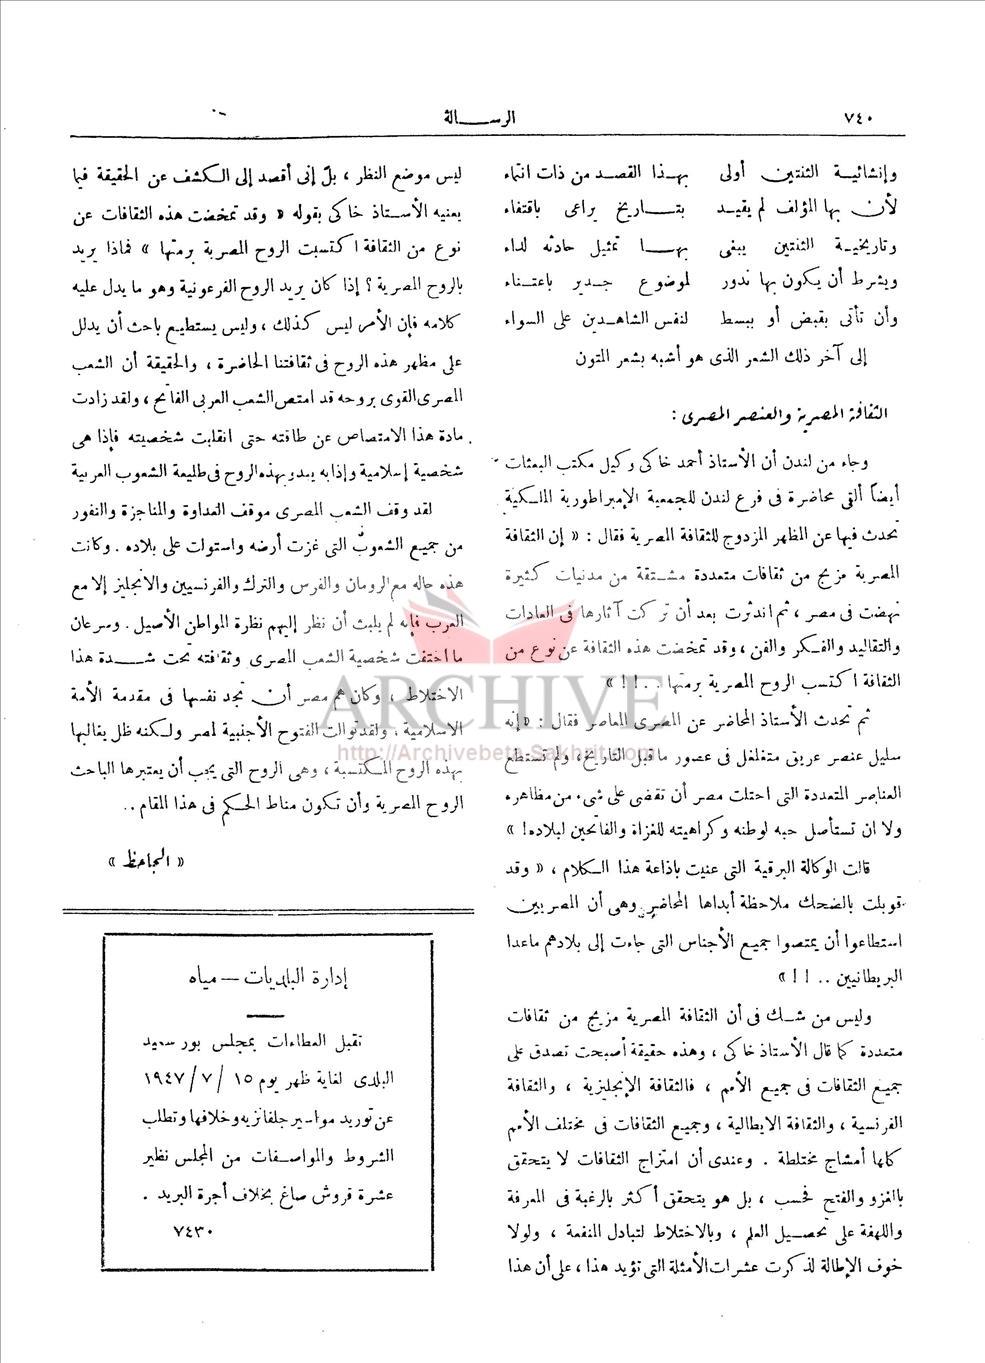 ٧٤٠
الرســـالة
وإنشائيــة الثنتين أولى بهــذا القصــد من ذات انتماء
لأن بها المؤلف لم يقيــد بتــــاريخ يراعى باقتفاء
وتاريخيــة الثنتين يبغى بهـــا تمثيل حادثه لداء
ويشرط أن يكون بها ندور لموضوع جــدير باعتــناء
وأن تأتى بقبض أو ببسط لنفس الشاهــدين على السواء
إلى آخر ذلك الشعر الذى هو أشبه بشعر المتون
الثقافة المصرية والعنصر المصرى :
وجاء من لندن أن الأستاذ أحمد خاكى وكيل مكتب البعثات
أيضاً ألقى محاضرة فى فرع لندن للجمعية الإمبراطورية الملكية
تحدث فيها عن المظهر المزدوج للثقافة المصرية فقال : « إن الثقافة
المصرية مزيج من ثقافات متعددة مشتقة من مدنيات كثيرة
نهضت فى مصر ، ثم اندثرت بعد أن تركت آثارها فى العادات
والتقاليد والفكر والفن ، وقد تمخضت هذه الثقافة عن نوع من
الثقافة اكتسب الروح المصرية برمتها . . ! ! »
ثم تحدث الأستاذ المحاضر عن المصرى المعاصر فقال : « إنه
سليل عنصر عريق متغلغل فى عصور ما قبل التاريخ ، ولم تستطع
العناصر المتعددة التى احتلت مصر أن تقضى على شىء من مظاهره
ولا ان تستأصل حبه لوطنه وكراهيته للغزاة والفاتحين لبلاده ! »
قالت الوكالة البرقية التى عنيت باذاعة هذا الكلام ، « وقد
قوبلت بالضحك ملاحظة أبداها المحاضر وهى أن المصريين
استطاعوا أن يمتصوا جميع الأجناس التى جاءت إلى بلادهم ماعدا
البريطانيين . . ! ! »
وليس من شك فى أن الثقافة المصرية مزيج من ثقافات
متعددة كما قال الأستاذ خاكى ، وهذه حقيقة أصبحت تصدق على
جميع الثقافات فى جميع الأمم ، فالثقافة الإنجليزية ، والثقافة
الفرنسية ، والثقافة الايطالية ، وجميع الثقافات فى مختلف الأمم
كلها أمشاج مختلطة . وعندى أن امتزاج الثقافات لا يتحقق
بالغزو والفتح فحسب ، بل هو يتحقق أكثر بالرغبة فى المعرفة
واللهفة على تحصيل العلم ، وبالاختلاط لتبادل المنفعة ، ولولا
خوف الإطالة لذكرت عشرات الأمثلة التى تؤيد هذا ، على أن هذا
ليس موضع النظر ، بل إنى أقصد إلى الكشف عن الحقيقة فيما
يعنيه الأستاذ خاكى بقوله « وقد تمخضت هذه الثقافات عن
نوع من الثقافة اكتسبت الروح المصرية برمتها » فماذا يريد
بالروح المصرية ؟ إذا كان يريد الروح الفرعونية وهو ما يدل عليه
كلامه فإن الأمر ليس كذلك ، وليس يستطيع باحث أن يدلل
على مظهر هذه الروح فى ثقافتنا الحاضرة ، والحقيقة أن الشعب
المصرى القوى بروحه قد امتص الشعب العربى الفاتح ، ولقد زادت
مادة هذا الامتصاص عن طاقته حتى انقلبت شخصيته فإذا هى
شخصية إسلامية وإذا به يبدو بهذه الروح فى طليعة الشعوب العربية
لقد وقف الشعب المصرى موقف العداوة والمناجزة والنفور
من جميع الشعوب التى غزت أرضه واستولت على بلاده . وكانت
هذه حاله مع الرومان والفرس والترك والفرنسيين والانجليز إلا مع
العرب فإنه لم يلبث أن نظر إليهم نظرة المواطن الأصيل . وسرعان
ما اختفت شخصية الشعب المصرى وثقافته تحت شــدة هذا
الاختلاط ، وكان هم مصر أن تجد نفسها فى مقدمة الأمة
الاسلامية . ولقد توالت الفتوح الأجنبية لمصر ولكنه ظل يغالبها
بهذه الروح المكتسبة ، وهى الروح التى يجب أن يعتبرها الباحث
الروح المصرية وأن تكون مناط الحكم فى هذا المقام . .
« الجاحظ »
إدارة البلديات — مياه
تقبل العطاءات بمجلس بور سعيد
البلدى لغاية ظهر يوم ١٥ /٧ /١٩٤٧
عن توريد مواسير جلفانزيه وخلافها وتطلب
الشروط والمواصفات من المجلس نظير
عشرة قروش صاغ بخلاف أجرة البريد .
٧٤٣٠
ARCHIVE
http://Archivebeta.Sakhrit.com